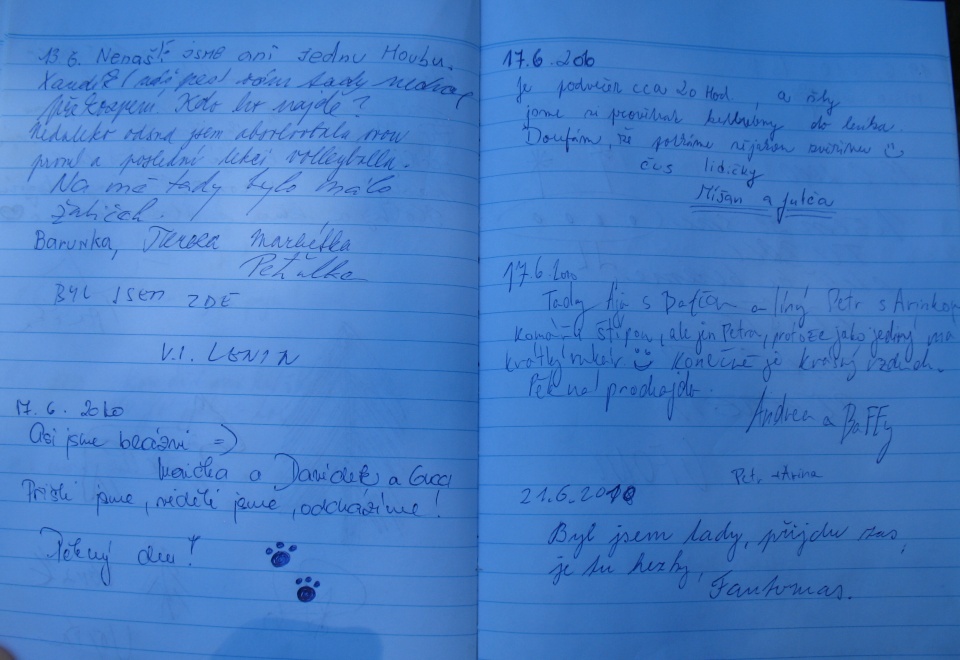 13.6. Nenašli jsme ani jednu Houbu.
tady nechal
překvapení. Kdo ho najde?
Nedaleko odsud jsem absolvovala svou
první a poslední lekci volleyballu.
Na mě tady bylo málo
žabiček.
Barunka, Terezka Markétka
Peťulka
BYL JSEM ZDE
V.I. LENIN
17.6.2010
Asi jsme blázni =)
a Davídek a Gucci
Přišli jsme, viděli jsme, odcházíme!
Pěkný den!
17.6.2010
Je podvečer cca 20 Hod., a šly
jsme si do lesíka
Doufám, že potkáme nějakou zvěřinu
čus lidičky
Míšan a Julča
17.6.2010
Tady Ája s a líný Petr s Arinkou
Komáři štípou, ale jen Petra, protože jako jediný má
krátký rukáv. Konečně je krásný vzduch.
Pěk na procházku.
Andrea a BaFFy
Petr + Arina
21.6.2010
Byl jsem tady, přijdu zas,
je tu hezky,
Fantomas.